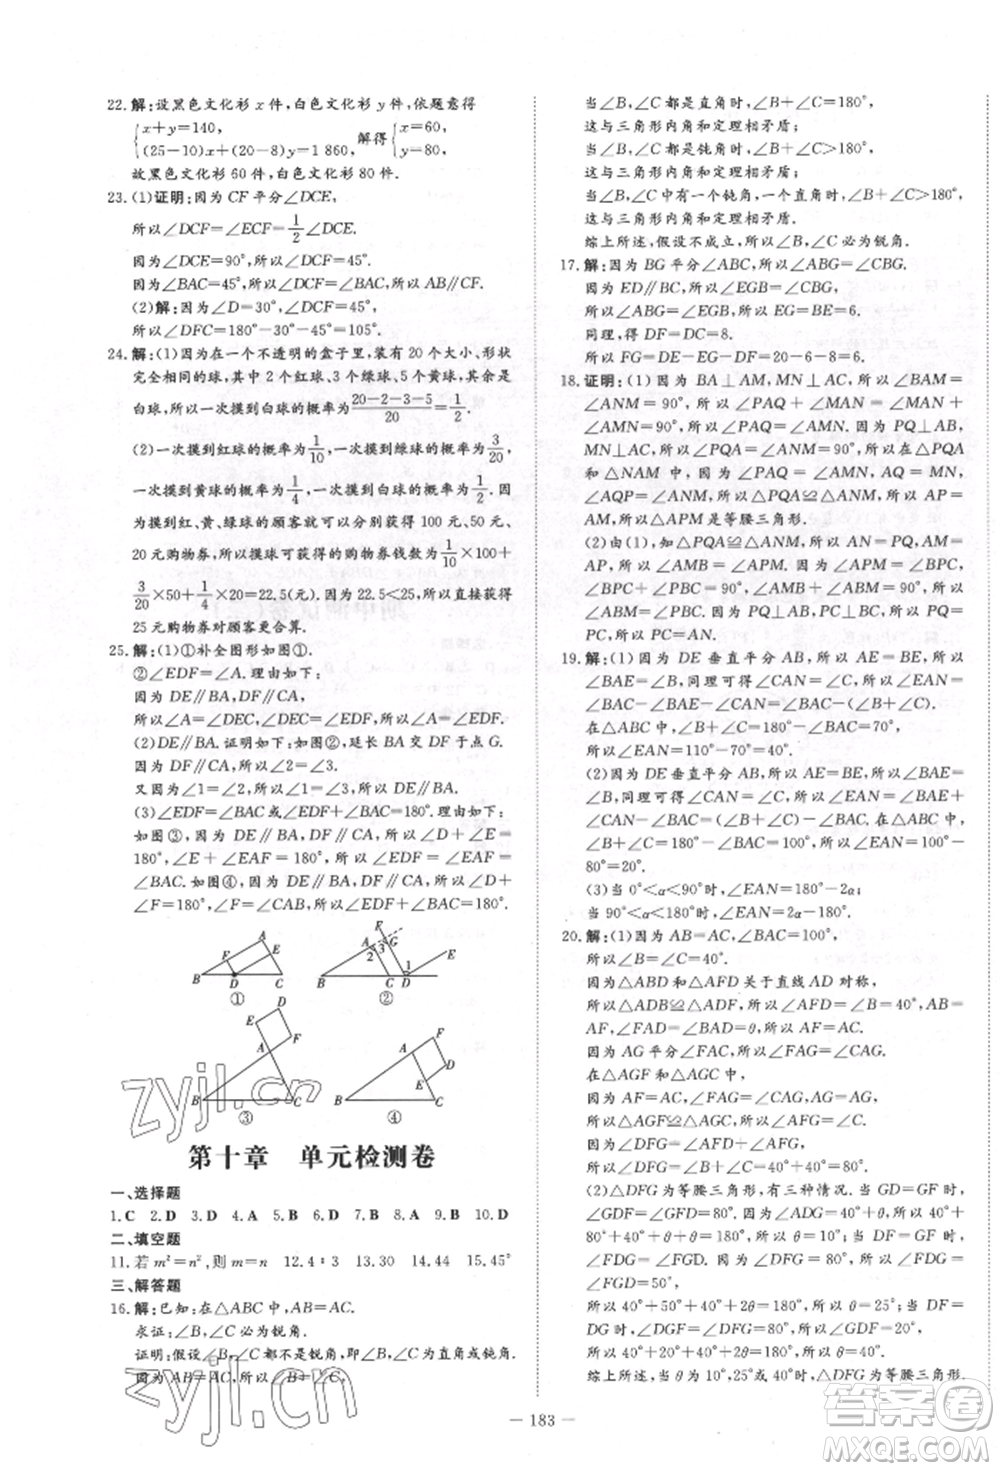 22. 解:设黑色文化衫 x 件,白色文化衫 y 件,依题意得
{x+y=140, (25-10)x+(20-8)y=1 860} 解得 {x=60, y=80.}
故黑色文化衫 60 件,白色文化衫 80 件.
23. (1)证明:因为 CF 平分∠DCE,
所以∠DCF=∠ECF=1/2∠DCE.
因为∠DCE=90°,所以∠DCF=45°.
因为∠BAC=45°,所以∠DCF=∠BAC,所以 CF∥AB.
(2)解:因为∠D=30°,∠DCF=45°,
所以∠DFC=180°-30°-45°=105°.
24. 解:(1)因为在一个不透明的盒子里装有 20 个大小、形状
完全相同的球,其中 2 个红球、3 个绿球、5 个黄球,其余是
白球,所以一次摸到白球的概率为(20-2-3-5)/20=1/2.
(2)一次摸到红球的概率为1/10,一次摸到绿球的概率为3/20,
一次摸到黄球的概率为1/4,一次摸到白球的概率为1/2.因为
摸到红、黄、绿球的顾客就可以分别获得 100 元、50 元、
20 元购物券,所以摸球可获得的购物券钱数为1/10×100+
3/20×50+1/4×20=22.5(元).因为22.5<25,所以直接获得
25 元购物券对顾客更合算.
25. 解:(1)①补全图形如图①.
②∠EDF=∠A.理由如下:
因为 DE∥BA,DF∥CA,
所以∠A=∠DEC,∠DEC=∠EDF,所以∠A=∠EDF.
(2)DE∥BA.证明如下:如图②,延长 BA 交 DF 于点 G.
因为 DF∥CA,所以∠2=∠3.
又因为∠1=∠2,所以∠1=∠3,所以 DE∥BA.
(3)∠EDF=∠BAC或∠EDF+∠BAC=180°.理由如下:
如图③,因为 DE∥BA,DF∥CA,所以∠D+∠E=
180°,∠E+∠EAF=180°,所以∠EDF=∠EAF=
∠BAC.如图④,因为 DE∥BA,DF∥CA,所以∠D
+∠F=180°,∠F=∠CAB,所以∠EDF+∠BAC=180°.
A F E B D C ①
A G F E 2 3 1 B C D ②
D E F A B C ③
F A E D B C ④
第十章 单元检测卷
一、选择题
1. C 2. D 3. D 4. A 5. B 6. D 7. B 8. A 9. B 10. D
二、填空题
11. 若 m²=n²,则 m=n 12. 4∶3 13. 30 14. 44 15. 45°
三、解答题
16. 解:已知:在△ABC 中,AB=AC.
求证:∠B,∠C 必为锐角.
证明:假设∠B,∠C 不是锐角,即∠B,∠C 为直角或钝角.
因为 AB=AC,所以∠B=∠C.
当∠B,∠C 都是直角时,∠B+∠C=180°,
这与三角形内角和定理相矛盾;
当∠B,∠C 都是钝角时,∠B+∠C>180°,
这与三角形内角和定理相矛盾;
当∠B,∠C 中有一个钝角,一个直角时,∠B+∠C>180°,
这与三角形内角和定理相矛盾.
综上所述,假设不成立,所以∠B,∠C 必为锐角.
17. 解:因为 BG 平分∠ABC,所以∠ABG=∠CBG.
因为 ED∥BC,所以∠EGB=∠CBG,
所以∠ABG=∠EGB,所以 EG=BE=6.
同理,得 DF=DC=8.
所以 FG=DE-EG-DF=20-6-8=6.
18. 证明:(1)因为 BA⊥AM,MN⊥AC,所以∠BAM=
∠ANM=90°,所以∠PAQ+∠MAN=∠MAN+
∠AMN=90°,所以∠PAQ=∠AMN.因为 PQ⊥AB,
MN⊥AC,所以∠PQA=∠ANM=90°.在△PQA
和△NAM 中,∠PAQ=∠AMN,AQ=MN,
∠AQP=∠MNA=90°,所以△PQA≌△ANM,所以 AP=
AM,所以△APM是等腰三角形.
(2)由(1)知,△PQA≌△ANM,所以 AN=PQ,AM=
AP,所以∠AMB=∠APM.因为∠APM=∠BPC,
∠BPC+∠PBC=90°,∠AMB+∠ABM=90°,所以
∠ABM=∠PBC.因为 PQ⊥AB,PC⊥BC,所以
PQ=PC,所以 PC=AN.
19. 解:(1)因为 DE 垂直平分 AB,所以 AE=BE,所以
∠BAE=∠B,同理可得∠CAN=∠C,所以∠EAN=
∠BAC-∠BAE-∠CAN=∠BAC-(∠B+∠C).
在△ABC 中,∠B+∠C=180°-∠BAC=70°,
所以∠EAN=110°-70°=40°.
(2)因为 DE垂直平分 AB,所以 AE=BE,所以∠BAE=
∠B,同理可得∠CAN=∠C,所以∠EAN=∠BAE
+∠CAN-∠BAC=(∠B+∠C)-∠BAC.在△ABC 中,
∠B+∠C=180°-∠BAC=100°,所以∠EAN=100°-
80°=20°.
(3)当 0°<α<90°时,∠EAN=180°-2α;
当 90°<α<180°时,∠EAN=2α-180°.
20. 解:(1)因为 AB=AC,∠BAC=100°,
所以∠B=∠C=40°.
因为△ABD和△AFD 关于直线 AD 对称,
所以△ADB≌△ADF,所以∠AFD=∠B=40°,AB=
AF,∠FAD=∠BAD=θ,所以 AF=AC.
因为 AG平分∠FAC,所以∠FAG=∠CAG.
在△AGF 和△AGC 中,
因为 AF=AC,∠FAG=∠CAG,AG=AG,
所以△AGF≌△AGC,所以∠AFG=∠C.
因为∠DFG=∠AFD+∠AFG,
所以∠DFG=∠B+∠C=40°+40°=80°.
(2)△DFG为等腰三角形,有三种情况.当 GD=GF时,
所以∠GDF=∠GFD=80°.因为∠ADG=40°+θ,所以
80°+40°+2θ=140°,所以θ=10°;当 DF=GF时,
∠FDG=∠FGD.因为∠DFG=80°,所以∠FDG=
∠FGD=50°,
所以 40°+50°+2θ=140°,所以θ=25°;当 DF=
DG时,∠DFG=∠DGF=80°,所以∠GDF=20°,
所以 40°+20°+2θ=140°,所以θ=40°.
综上所述,当θ=10°,25°或40°时,△DFG 为等腰三角形.
— 183 —
zyjl.cn
zyjl.cn
答案圈
MXQE.COM